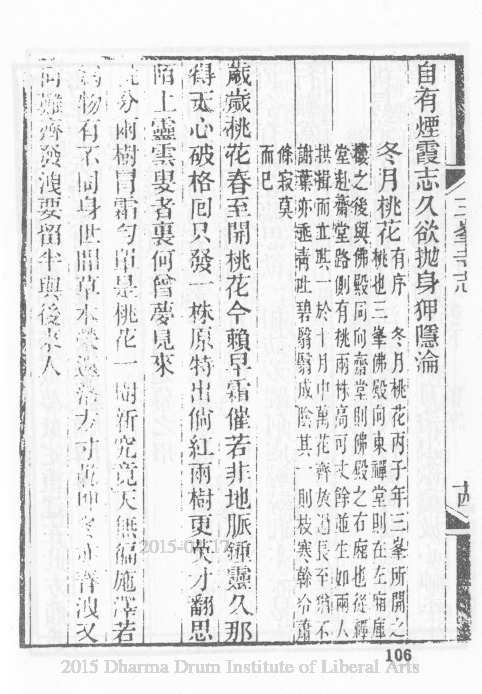 三峯寺志
十四
自有煙霞志久欲抛身狎隱淪
冬月桃花有序 冬月桃花丙子年三峯所開之
桃也三峯佛殿向東禪堂則在左廂庫
樓之後與佛殿同向齋堂則佛殿之右廡也從禪
堂赴齋堂路則有桃兩株高可丈餘並生如兩人
拱揖而立其一於十月中萬花齊放過長至猶不
謝葉亦亟青吐碧翳翳成陰其一則枝寒榦冷蕭
條寂莫
而已
歲歲桃花春至開桃花今賴早霜催若非地脈鍾靈久那
得天心破格回只發一株原特出倘紅兩樹更英才翻思
陌上靈雲叟者裏何曾夢見來
分兩樹冐霜勻單是桃花一樹新究竟天無偏施澤若
為物有不同身世間草木榮
難齊發洩要留半與後來人
106
2015 Dharma Drum Institute of Liberal Arts